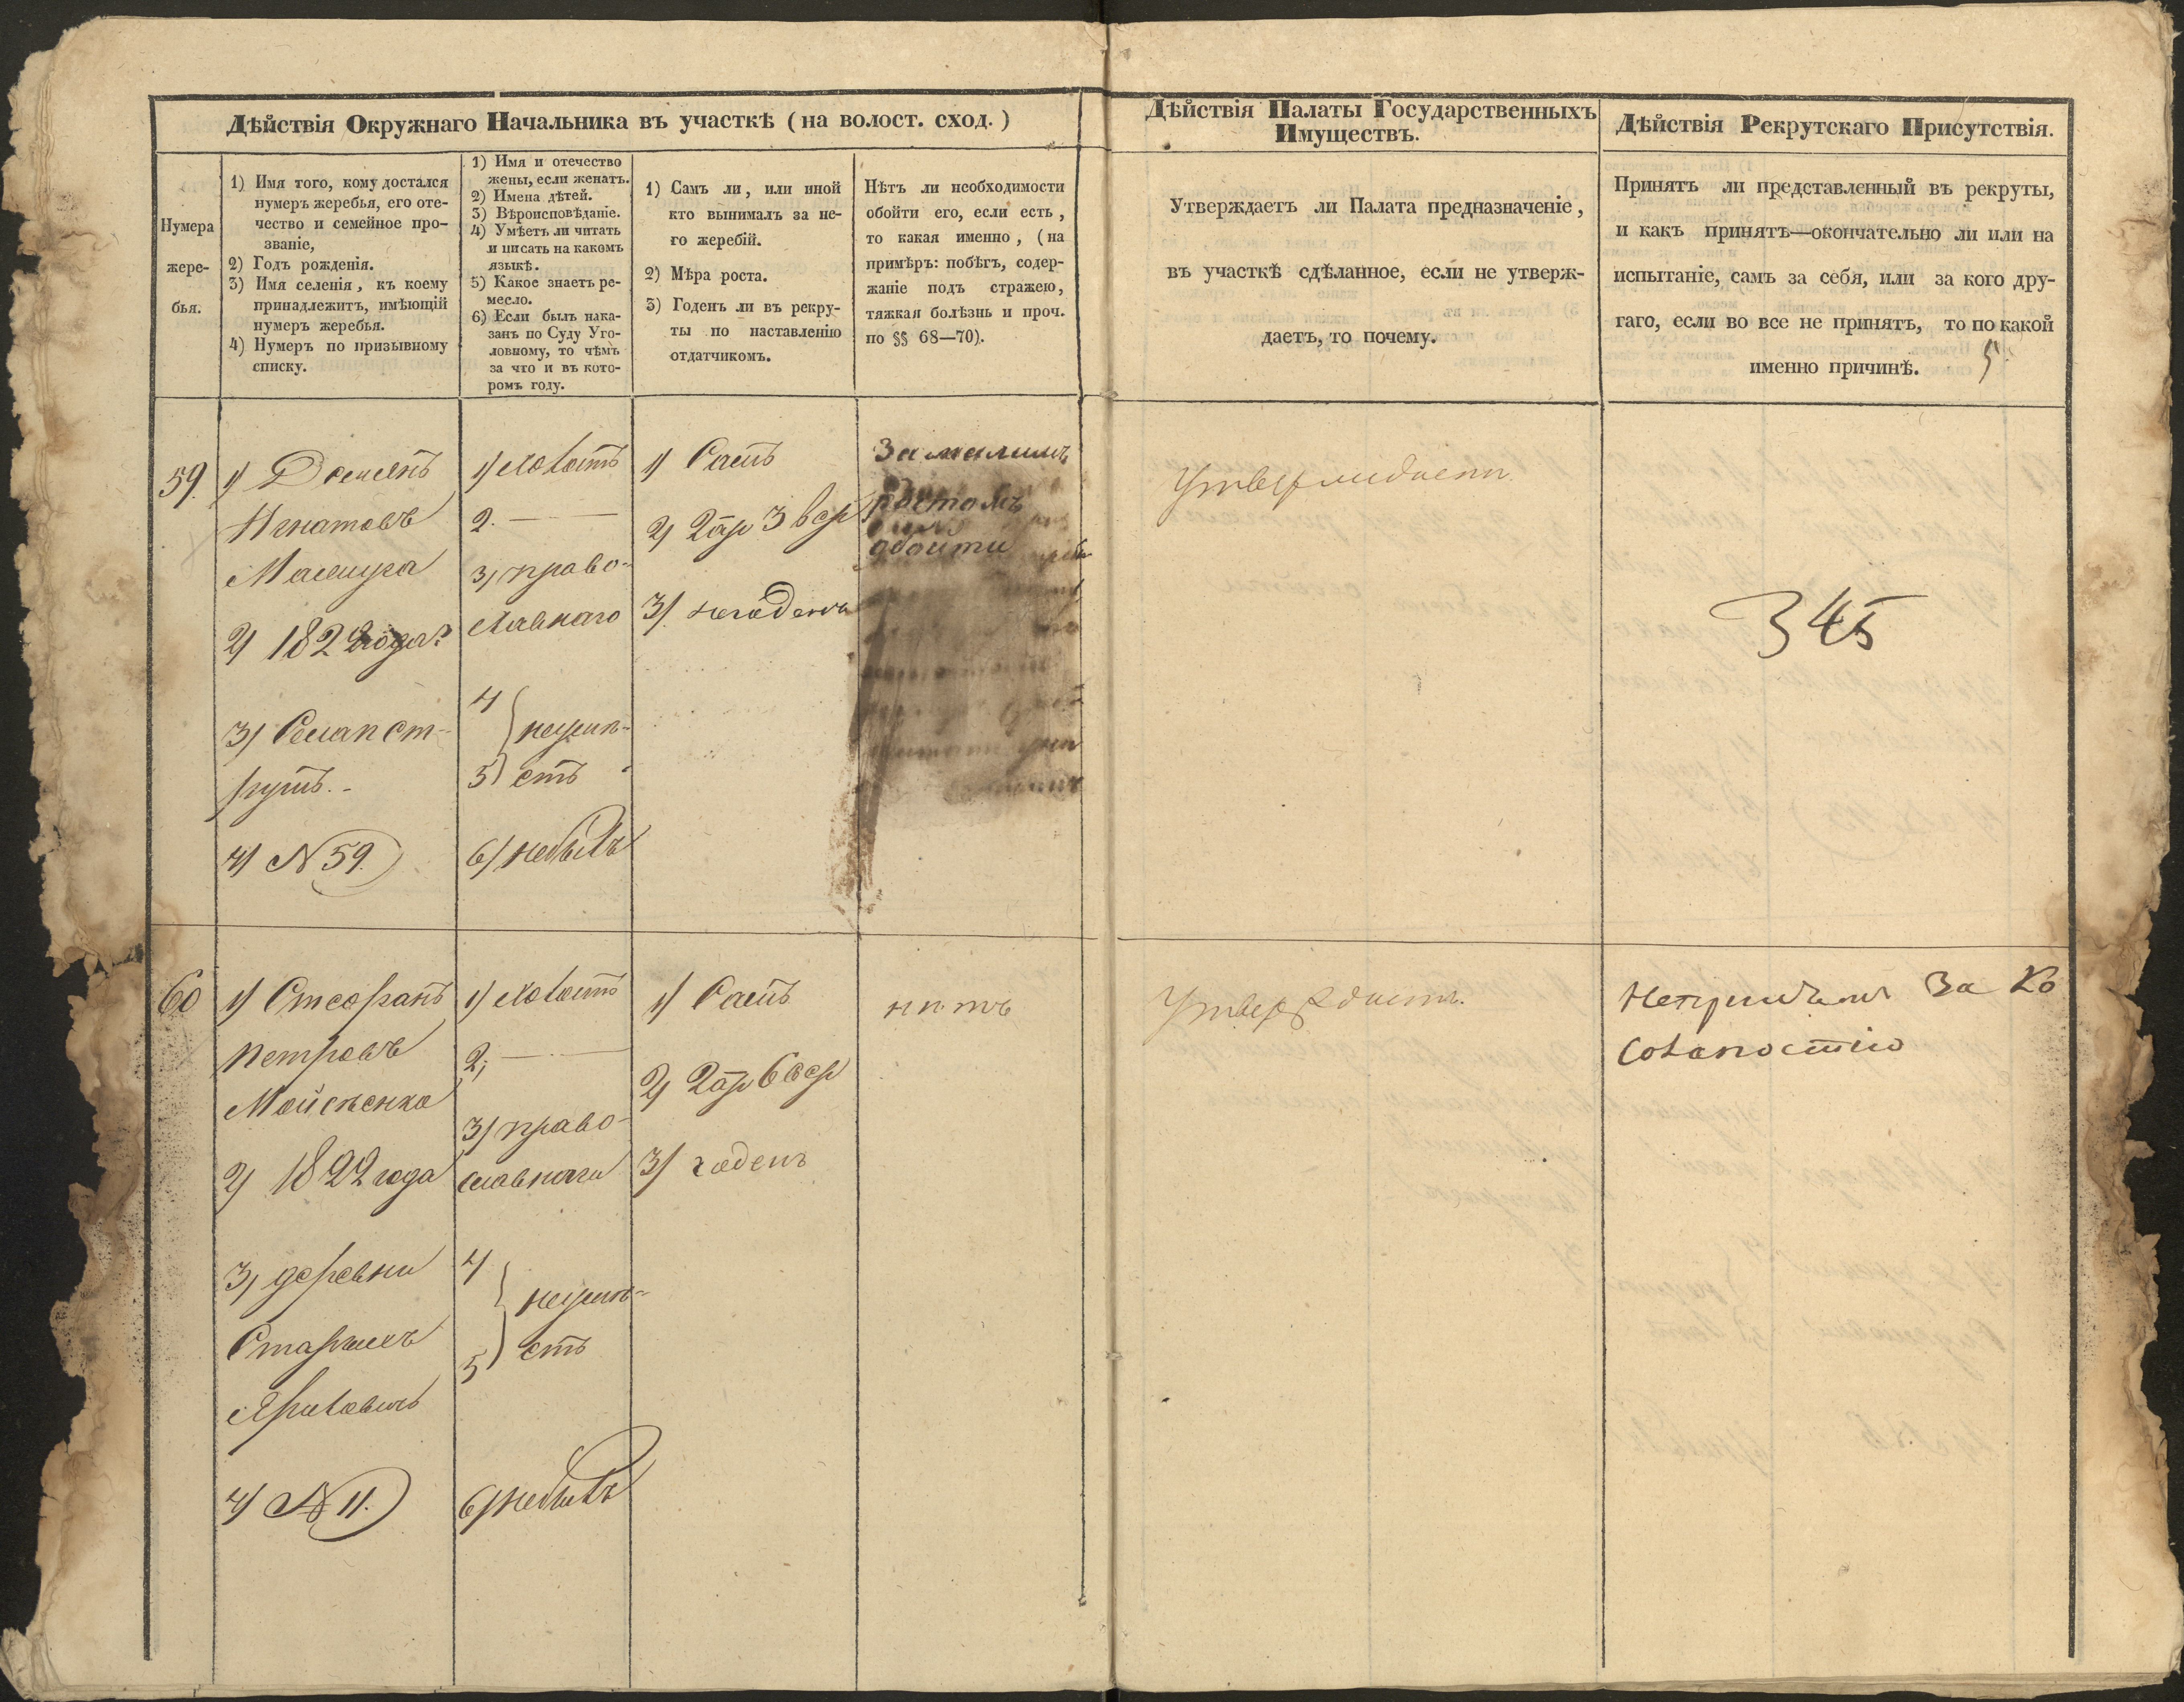 Дѣйствія Окружнаго Начальника въ участкѣ (на волост. сход.)
Нумера
жере-
бья.
1) Имя того, кому достался
нумеръ жеребья, его оте-
чество и семейное про-
званіе,
2) Годъ рожденія.
3) Имя селенія, къ коему
принадлежитъ, имѣющій
нумеръ жеребья.
4) Нумеръ по призывному
списку.
1) Имя и отечество
жены, если женатъ.
2) Имена дѣтей.
3) Вѣроисповѣданіе.
4) Умѣетъ ли читать
и писать на какомъ
языкѣ.
5) Какое знаетъ ре-
месло.
6) Если былъ нака-
занъ по Суду Уго-
ловному, то чѣмъ
за что и въ кото-
ромъ году.
1) Самъ ли, или иной
кто вынималъ за не-
го жеребій.
2) Мѣра роста.
3) Годенъ ли въ рекру-
ты по наставленію
отдатчикомъ.
Нѣтъ ли необходимости
обойти его, если есть,
то какая именно, (на
примѣръ: побѣгъ, содер-
жаніе подъ стражею,
тяжкая болѣзнь и проч.
по §§ 68—70).
59.
1) Демянъ
Игнатовъ
Мамуга
2) 1822 года
3)
4) N 59.
1) Холостъ
2. —
3) право-
славнаго
4
5) неумѣ-
етъ
6) небылъ
1) Самъ
2) 2 ар 3 вер
3) негоденъ
За малымъ
ростомъ
обойти
60
1) Стефанъ
Петровъ
Мойсѣенко
2) 1822 года
3) деревни
Старыхъ
Яриловичъ
4) N 11.
1) Холостъ
2; —
3) право-
славнаго
4
5) неумѣ-
етъ
6) небылъ
1) Самъ
2) 2 ар 6 вер
3) годенъ
нѣтъ
Дѣйствія Палаты Государственныхъ
Имуществъ.
Утверждаетъ ли Палата предназначеніе,
въ участкѣ сдѣланное, если не утверж-
даетъ, то почему.
Утверждаетъ
Утверждаетъ.
Дѣйствія Рекрутскаго Присутствія.
Принятъ ли представленный въ рекруты,
и какъ принятъ—окончательно ли или на
испытаніе, самъ за себя, или за кого дру-
гаго, если во все не принятъ, то по какой
именно причинѣ.
5
345
Непринятъ За Ко
солапостію